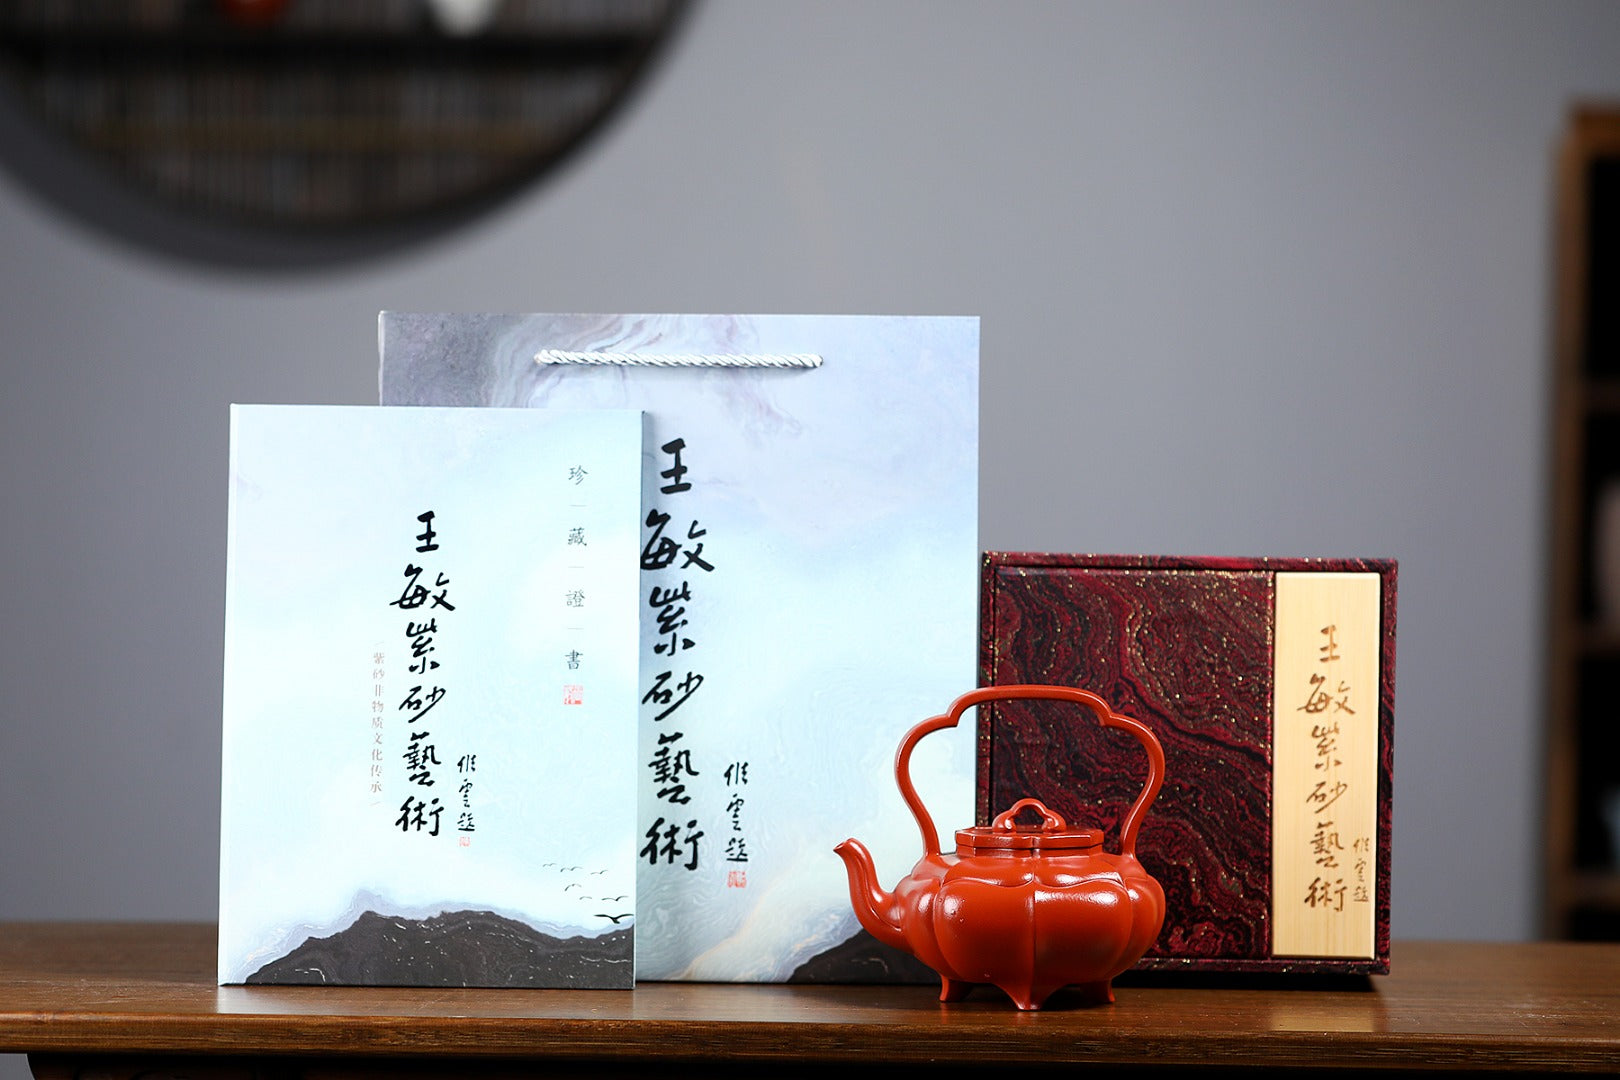 珍藏證書
王敏紫砂藝術
紫砂非物质文化传承
惟雲題
王敏紫砂藝術
惟雲題
王敏紫砂藝術
惟雲題